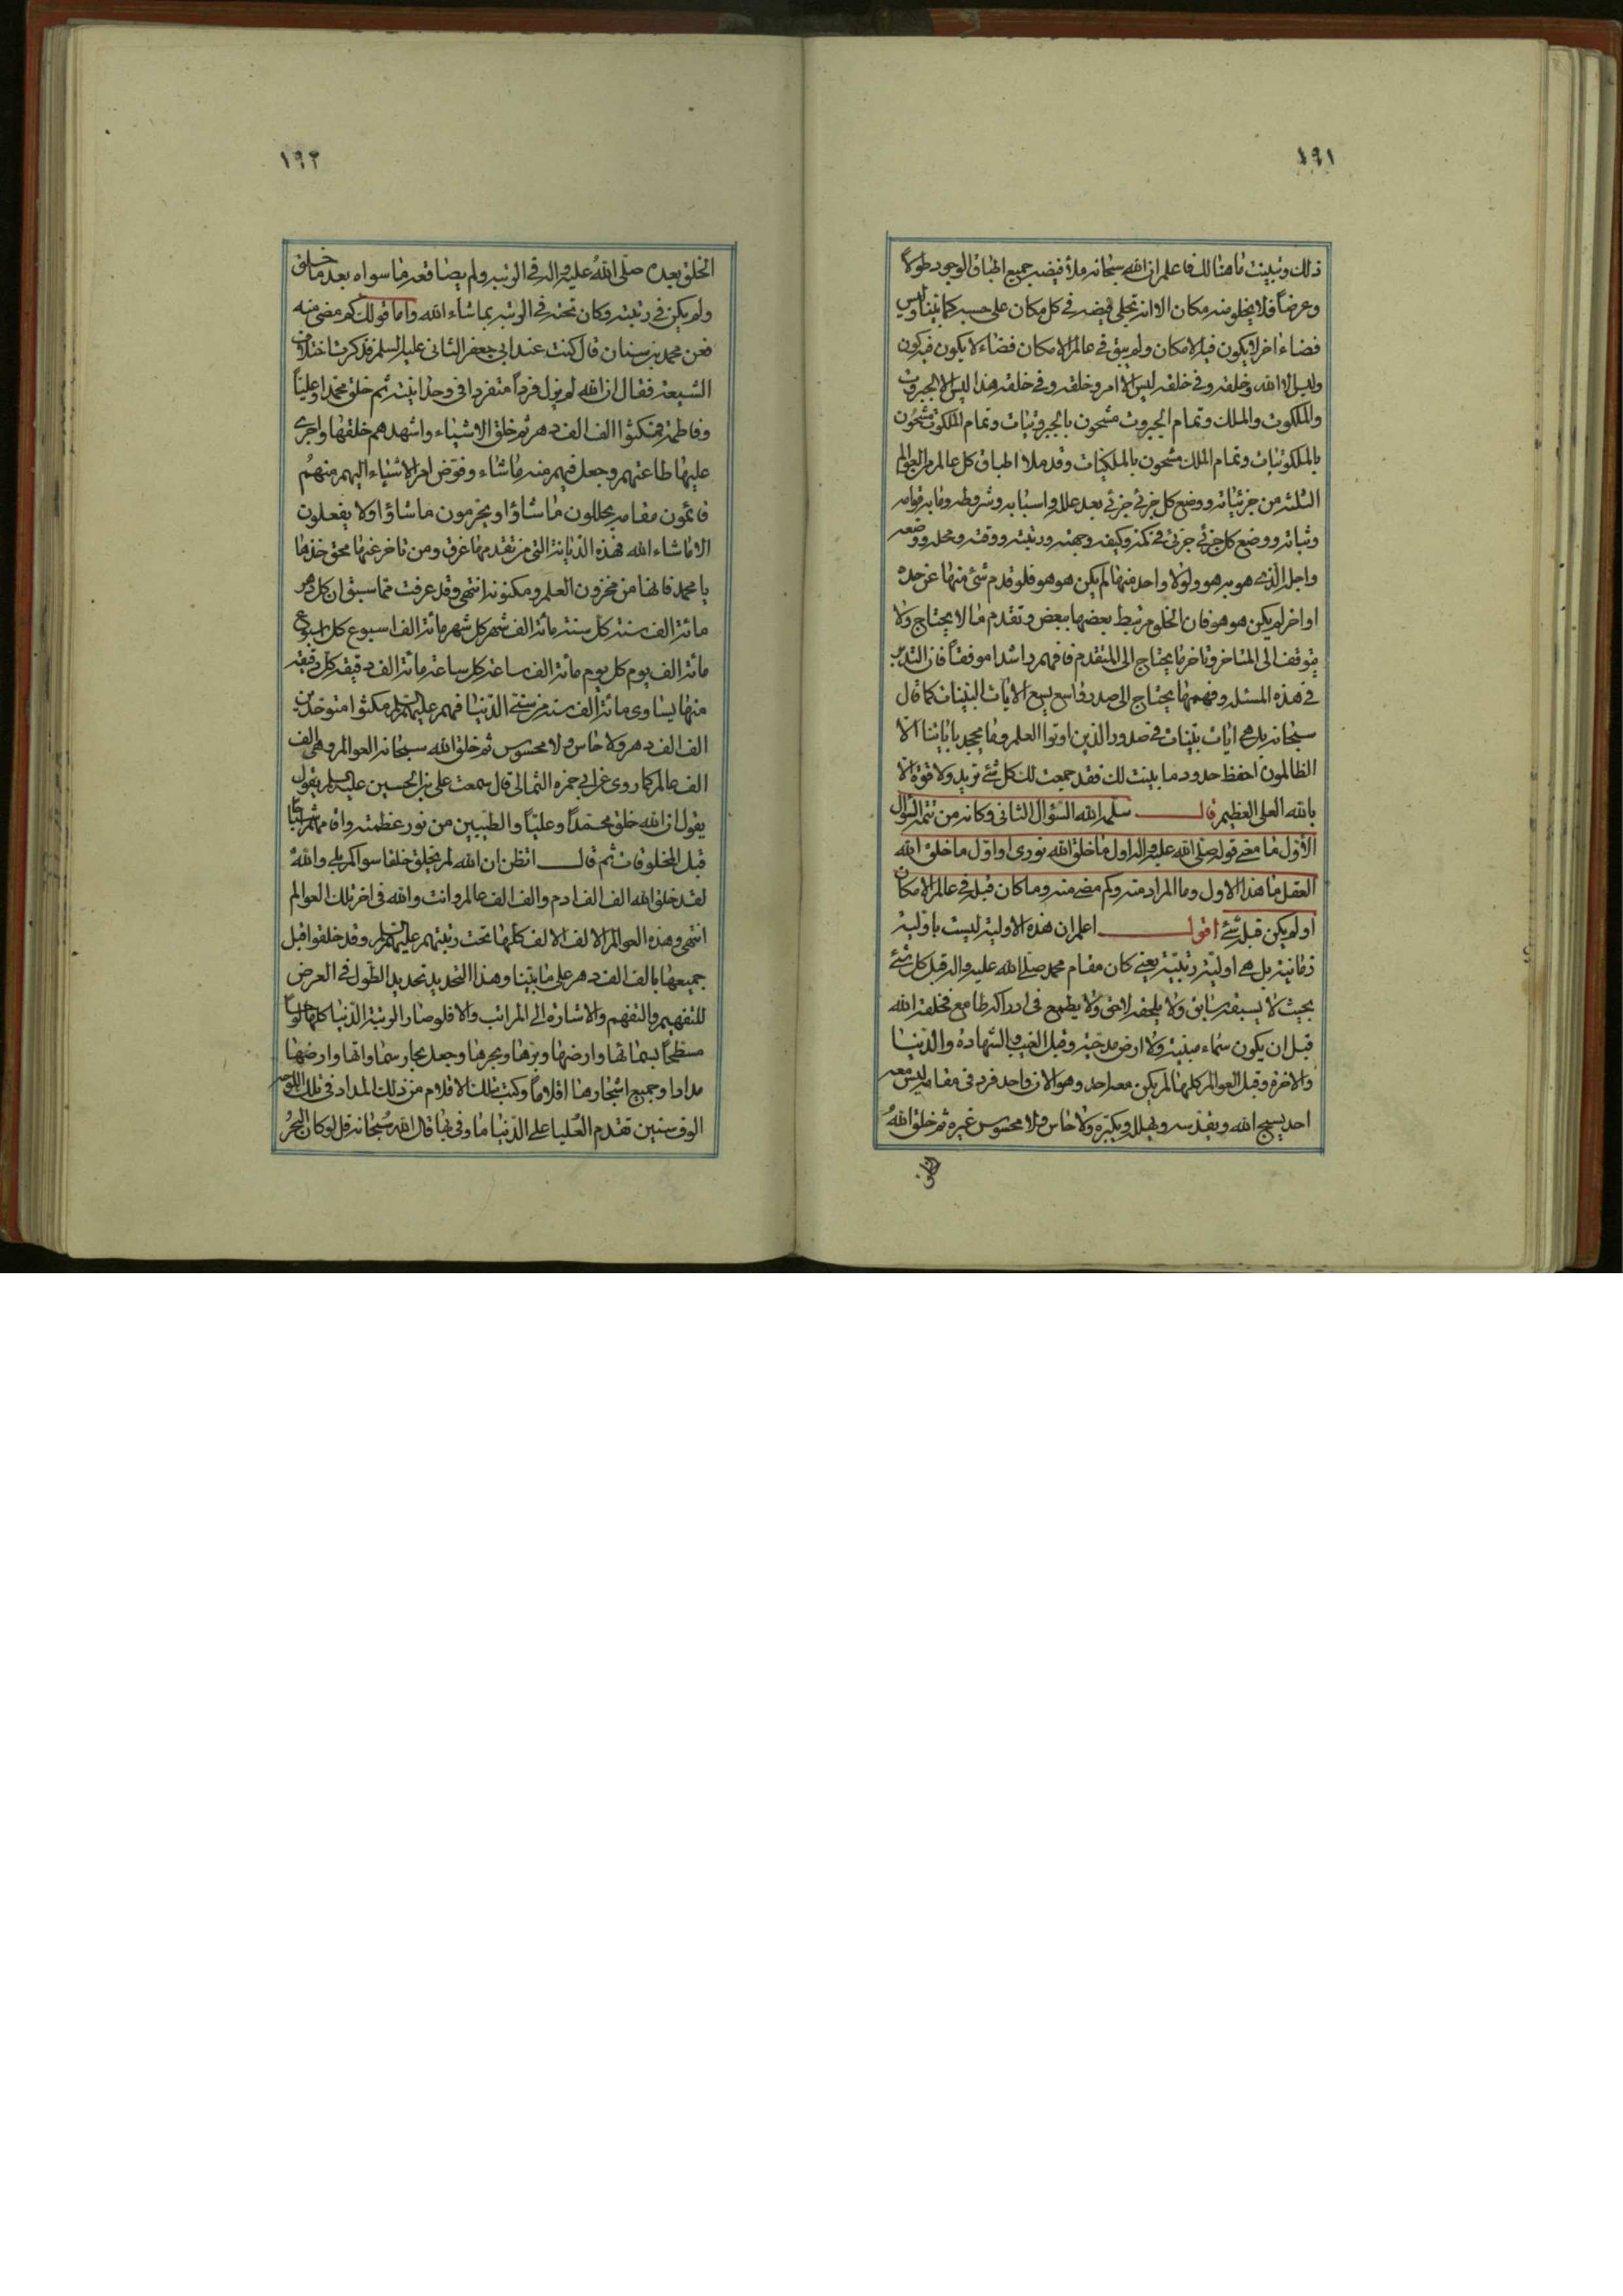 ١٩١
ذلك وتبينت ما هنالك فاعلم ان الله سبحانه ملأ فيضه جميع اطباق الوجود طولاً
وعرضاً فلا يخلو منه مكان الا انه تجلى فيضه في كل مكان على حسبه كما بينا وليس
فضاء اخر لا يكون فيه الامكان ولم يبق في عالم الامكان فضاء لا يكون فيه كون
وليس الا الله وخلقه وفي خلقه ليس الا امر وخلقه وفي خلقه هذا ليس الا الجبروت
والملكوت والملك وتمام الجبروت مشحون بالجبروتيات وتمام الملكوت مشحون
بالملكوتيات وتمام الملك مشحون بالملكيات وقد ملأ اطباق كل عالم من العوالم
الثلثه من جزئياته ووضع كل جزئي جزئي بعد علله واسبابه وشروطه وما به قوامه
وثباته ووضع كل جزئي جزئي في كمه وكيفه وجهته ورتبته ووقته ومحله ووضعه
واجله الذي هو به هو ولولا واحد منها لم يكن هو هو فلو قدم شئ منها عن حده
او اخر لم يكن هو هو فان الخلق مرتبط بعضها ببعض وتقدم ما لا يحتاج ولا
يتوقف الى المتاخر وتاخر ما يحتاج الى المتقدم فافهم راشدا موفقاً فان التدبر
في هذه المسئلة وفهمها يحتاج الى صدر واسع يسع الايات البينات كما قال
سبحانه بل هي ايات بينات في صدور الذين اوتوا العلم وما يجحد باياتنا الا
الظالمون احفظ حدود ما بينت لك فقد جمعت لك كل شئ تريد ولا قوة الا
بالله العلي العظيم قال سلمه الله السؤال الثاني وكانه من تتمة السؤال
الأول ما معنى قوله صلى الله عليه واله اول ما خلق الله نوري او اول ما خلق الله
العقل ما هذا الاول وما المراد منه وكم مضى منه وما كان قبله في عالم الامكان
او لم يكن قبله شئ اقول اعلم ان هذه الاولية ليست باولية
زمانية بل هي اولية رتبية يعني كان مقام محمد صلى الله عليه واله قبل كل شئ
بحيث لا يسبقه سابق ولا يلحقه لاحق ولا يطمع في ادراكه طامع فخلقه الله
قبل ان يكون سماء مبنية ولا ارض مدحية وقبل الغيب والشهادة والدنيا
والاخرة وقبل العوالم كلها لم يكن معه احد وهو الان واحد فرد في مقامه ليس معه
احد يسبح الله ويقدسه ويهلله ويكبره ولا حاس ولا محسوس غيره ثم خلق اللهُ
الخلق
١٩٢
الخلق بعده صلى اللهُ عليه واله في الرتبه ولم يضا قعه ما سواه بعد ما خلق
ولم يكن في رتبته وكان تحته في الرتبه بما شاء الله واما قولك كم مضى منه
فعن محمد بن سنان قال كنت عند ابي جعفر الثاني عليه السلم فذكرت اختلاف
الشيعة فقال ان الله لم يزل فرداً متفردا في وحدانيته ثم خلق محمدا وعلياً
وفاطمة فمكثوا الف الف دهر ثم خلق الاشياء واشهدهم خلقها واجرى
عليها طاعتهم وجعل فيهم منه ما شاء وفوض امر الاشياء اليهم منهم
قائمون مقامه يحللون ما شاؤا ويحرمون ما شاؤا ولا يفعلون
الا ما شاء الله فهذه الديانة التي من تقدمها غرق ومن تاخر عنها محق خذها
يا محمد فانها من مخزون العلم ومكنونه انتهى وقد عرفت مما سبق ان كل دهر
مائة الف سنة كل سنة مائة الف شهر كل شهر مائة الف اسبوع كل اسبوع
مائة الف يوم كل يوم مائة الف ساعة كل ساعة مائة الف دقيقة كل دقيقة
منها يساوى مائة الف سنة من سني الدنيا فهم عليهم السلم مكثوا متوحدين
الف الف دهر ولا حاس ولا محسوس ثم خلق الله سبحانه العوالم وهي الف
الف عالم كما روى عن ابي حمزه الثمالي قال سمعت علي بن الحسين عليه السلم يقول
يقول ان الله خلق محمّداً وعليّاً والطيبين من نور عظمته واقامهم اشباحا
قبل المخلوقات ثم قال اتظن ان الله لم يخلق خلقا سواكم بلى واللهُ
لقد خلق الله الف الف ادم والف الف عالم وانت والله في اخر تلك العوالم
انتهى وهذه العوالم الالف الالف كلها تحت رتبتهم عليهم السلم وقد خلقوا قبل
جميعها بالف الف دهر على ما بينا وهذا التحديد تحديد الطول في العرض
للتفهيم والتفهم والاشارة الى المراتب والا فلو صار الرتبة الدنيا كلها لوحاً
مسطحاً بسمائها وارضها وبرها وبحرها وجعل بحار سماواتها وارضها
مدادا وجميع اشجارها اقلاماً وكتب بتلك الاقلام من ذلك المداد في تلك اللوح
الوف سنين تقدم العُليا على الدنيا ما وفى بها قال الله سُبحانه قل لو كان البحرُ